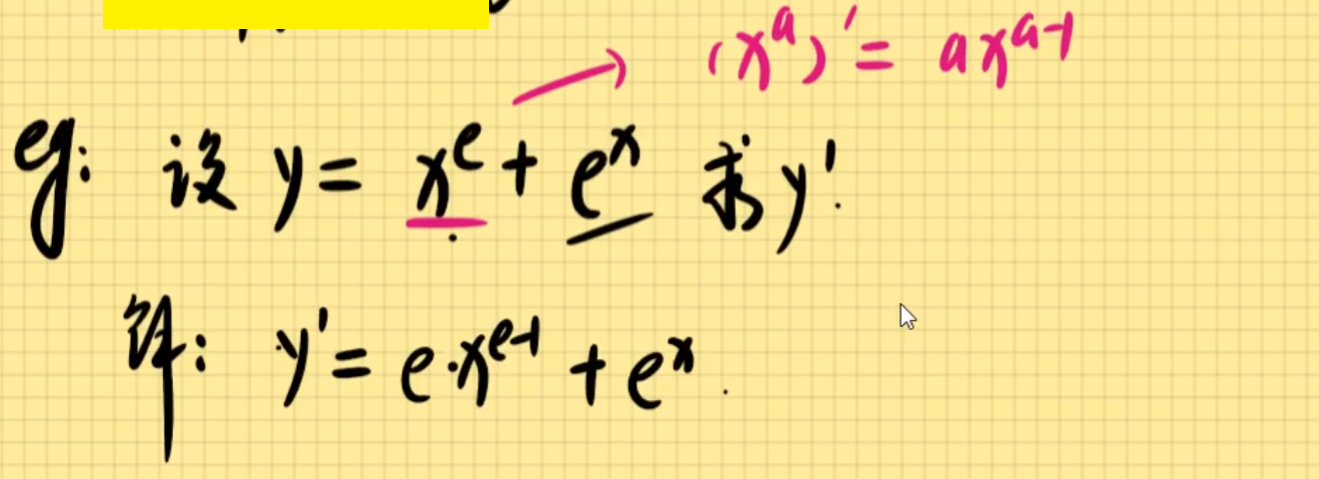 (xᵃ)' = axᵃ⁻¹
eg: 设 y = xᵉ + eˣ 求y'.
解: y' = e·xᵉ⁻¹ + eˣ.